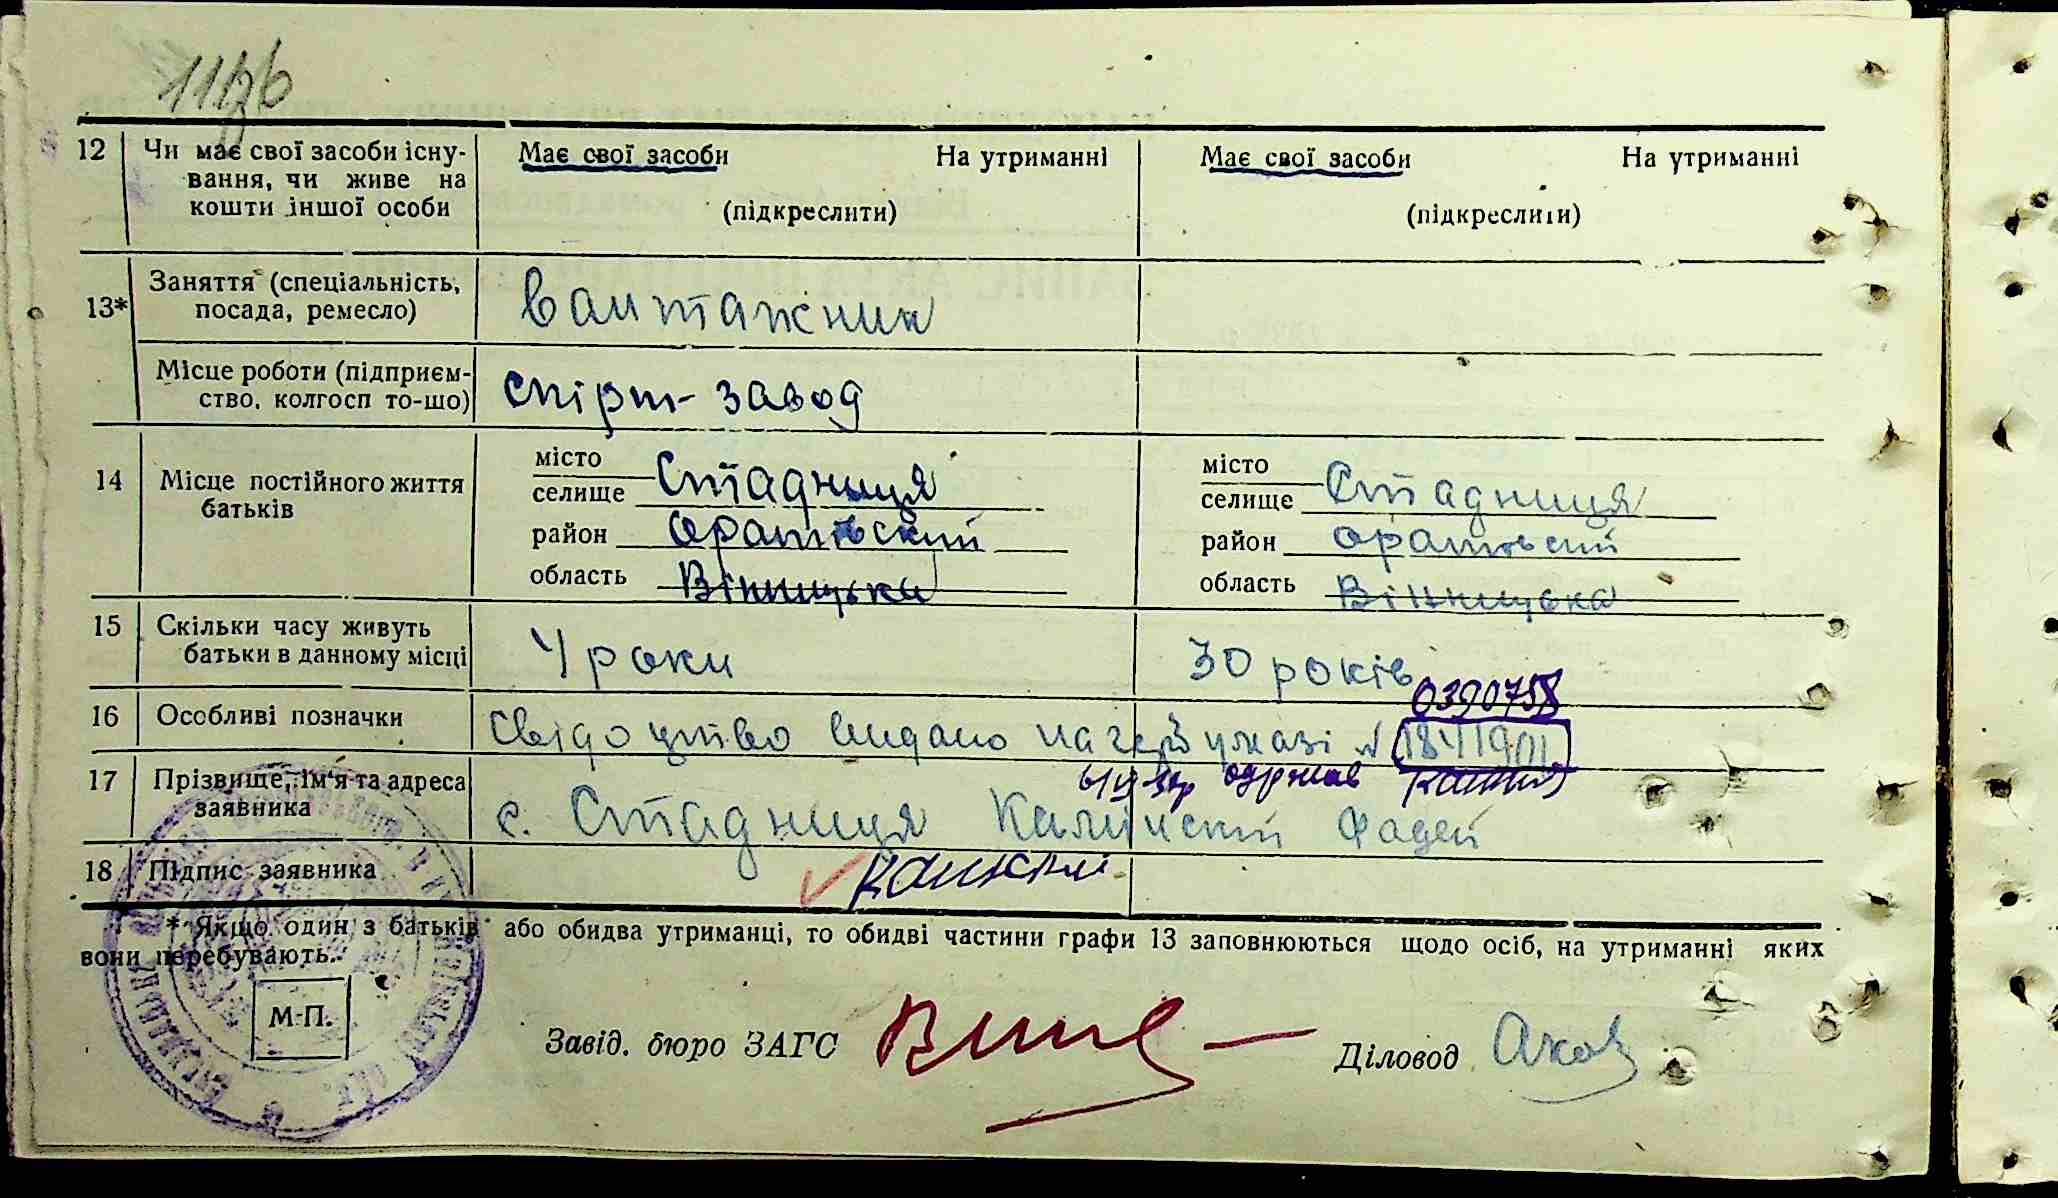 12 Чи має свої засоби існу- Має свої засоби На утриманні Має свої засоби На утриманні
вання, чи живе на
кошти іншої особи (підкреслити) (підкреслити)
13* Заняття (спеціальність, вантажник
посада, ремесло)
Місце роботи (підприєм- спірт-завод
ство, колгосп то-що)
14 Місце постійного життя місто місто
батьків селище Стадниця селище Стадниця
район Оратівский район Оратовский
область Вінницька область Вінницька
15 Скільки часу живуть 4 роки 30 років
батьки в данному місці
0390758
16 Особливі позначки Свідоцтво видано на
17 Прізвище, ім'я та адреса одержав
заявника с. Стадниця Калінский Фадей
18 Підпис заявника
* Якщо один з батьків або обидва утриманці, то обидві частини графи 13 заповнюються щодо осіб, на утриманні яких
вони перебувають.
М-П.
Завід. бюро ЗАГС Діловод